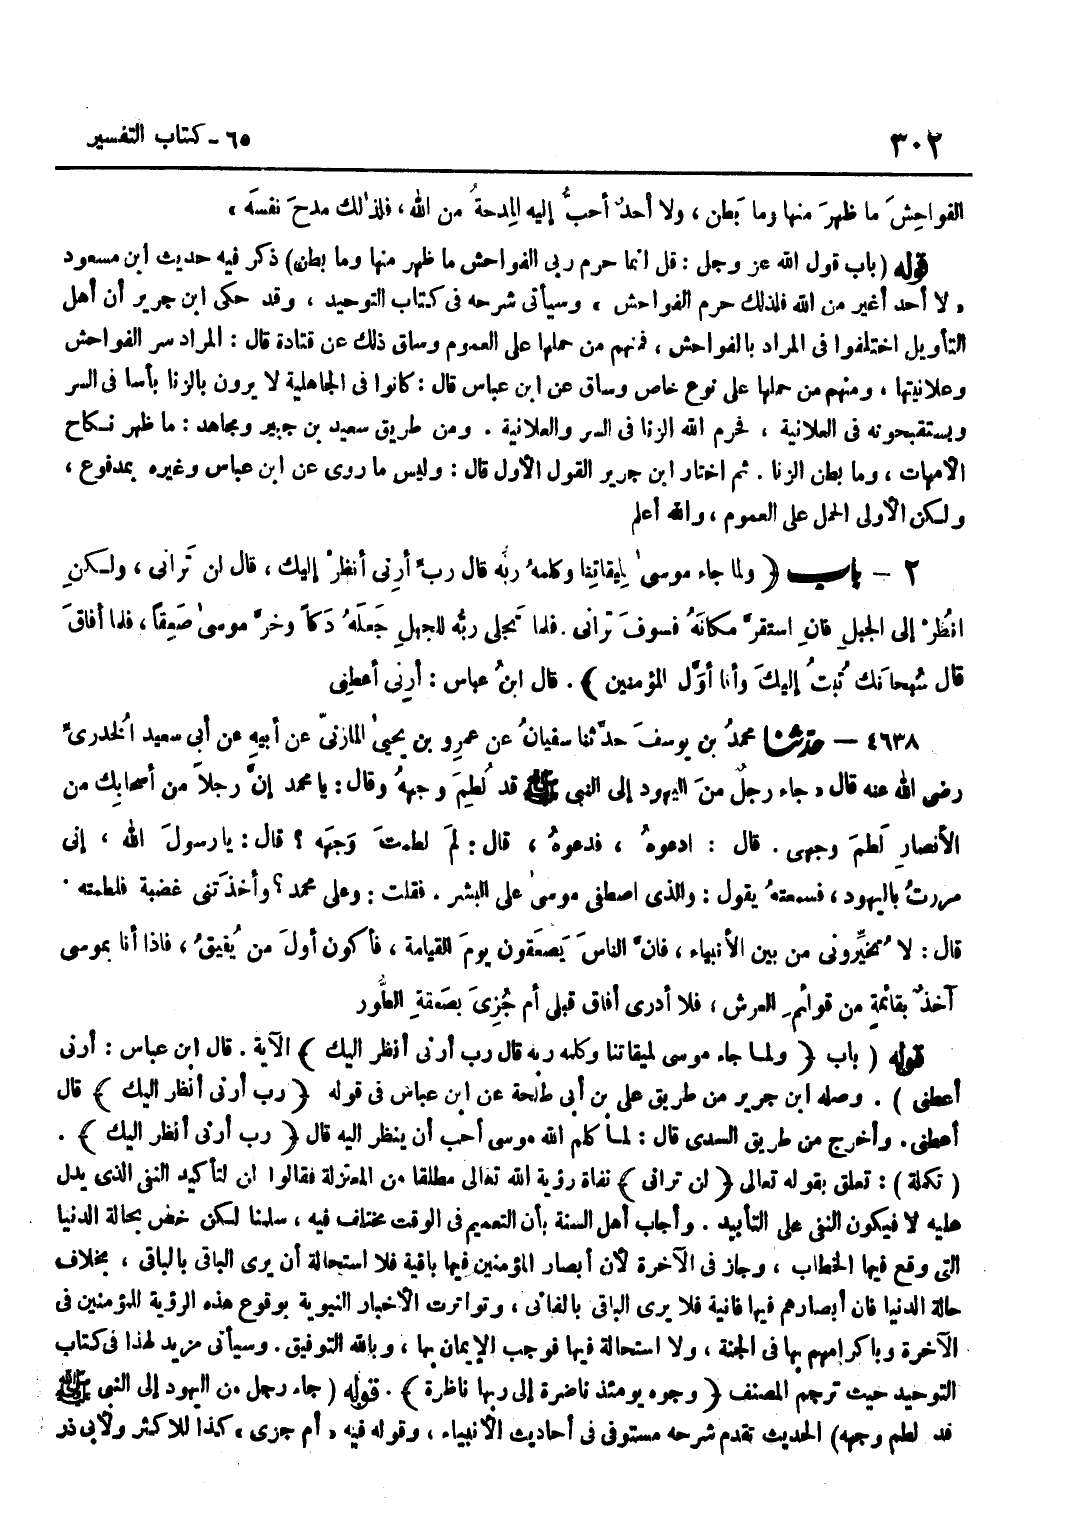 ٣٠٢
٦٥ - كتاب التفسير
الفواحِشَ ما ظهرَ منها وما بَطن ، ولا أحدٌ أحبُّ إليه المِدحةُ من الله ، فلذٰلك مدحَ نفسَه »
قوله ( باب قول الله عز وجل : قل انما حرم ربى الفواحش ما ظهر منها وما بطن) ذكر فيه حديث ابن مسعود
« لا أحد أغير من الله فلذلك حرم الفواحش » وسيأتى شرحه فى كتاب التوحيد ، وقد حكى ابن جرير أن أهل
التأويل اختلفوا فى المراد بالفواحش ، فمنهم من حملها على العموم وساق ذلك عن قتادة قال : المراد سر الفواحش
وعلانيتها ، ومنهم من حملها على نوع خاص وساق عن ابن عباس قال : كانوا فى الجاهلية لا يرون بالزنا بأسا فى السر
ويستقبحونه فى العلانية ، فحرم الله الزنا فى السر والعلانية . ومن طريق سعيد بن جبير ومجاهد : ما ظهر نكاح
الأمهات ، وما بطن الزنا . ثم اختار ابن جرير القول الأول قال : وليس ما روى عن ابن عباس وغيره بمدفوع ،
ولكن الأولى الحمل على العموم ، والله أعلم
٢ - باب ﴿ ولما جاء موسىٰ لِميقاتِنا وكلمهُ ربُّه قال ربِّ أرِنى أنظرْ إليك ، قال لن تَرانى ، ولكنِ
انظُرْ إلى الجبلِ فانِ استقرَّ مكانَهُ فسوفَ ترانى . فلما تَجلى ربُّه للجبلِ جَعلَهُ دَكاً وخرَّ موسىٰ صَعِقاً ، فلما أفاقَ
قال سُبحانَك تُبتُ إليكَ وأنا أوَّل المؤمنين ﴾ . قال ابنُ عباس : أرِنى أعطِنى
٤٦٣٨ - حدثنا محمدُ بن يوسفَ حدَّثنا سفيانُ عن عمرِو بن يحيىٰ المازنىّ عن أبيهِ عن أبى سعيد الخدرىِّ
رضى الله عنه قال « جاء رجلٌ منَ اليهود إلى النبى ﷺ قد لُطِمَ وجههُ وقال : يا محمد إنَّ رجلاً من أصحابِك من
الأنصارِ لَطمَ وجهى . قال : ادعوهُ ، فدعوهُ ، قال : لمَ لطمتَ وَجهَه ؟ قال : يا رسولَ الله ، إنى
مررتُ باليهود ، فسمعتهُ يقول : والذى اصطفى موسىٰ على البشر . فقلت : وعلى محمد ؟ وأخذَتنى غضبة فلطمته .
قال : لا تُخيِّرونى من بين الأنبياء ، فانَّ الناسَ يَصعَقون يومَ القيامة ، فأكون أولَ من يُفيقُ ، فاذا أنا بموسى
آخذٌ بقائمةٍ من قوائمِ العرش ، فلا أدرى أفاق قبلى أم جُزِىَ بصَعقةِ الطُّور
قوله ( باب ﴿ ولما جاء موسى لميقاتنا وكلمه ربه قال رب أرنى أنظر اليك ﴾ الآية . قال ابن عباس : أرنى
أعطنى ) . وصله ابن جرير من طريق على بن أبى طلحة عن ابن عباس فى قوله ﴿ رب أرنى أنظر اليك ﴾ قال
أعطنى . وأخرج من طريق السدى قال : لما كلم الله موسى أحب أن ينظر اليه قال ﴿ رب أرنى أنظر اليك ﴾ .
( تكملة ) : تعلق بقوله تعالى ﴿ لن ترانى ﴾ نفاة رؤية الله تعالى مطلقا من المعتزلة فقالوا لن لتأكيد النفى الذى يدل
عليه لا فيكون النفى على التأبيد . وأجاب أهل السنة بأن التعميم فى الوقت مختلف فيه ، سلمنا لكن خص بحالة الدنيا
التى وقع فيها الخطاب ، وجاز فى الآخرة لأن أبصار المؤمنين فيها باقية فلا استحالة أن يرى الباقى بالباقى ، بخلاف
حالة الدنيا فان أبصارهم فيها فانية فلا يرى الباقى بالفانى ، وتواترت الأخبار النبوية بوقوع هذه الرؤية للمؤمنين فى
الآخرة وباكرامهم بها فى الجنة ، ولا استحالة فيها فوجب الإيمان بها ، وبالله التوفيق . وسيأتى مزيد لهذا فى كتاب
التوحيد حيث ترجم المصنف ﴿ وجوه يومئذ ناضرة إلى ربها ناظرة ﴾ . قوله ( جاء رجل من اليهود إلى النبى ﷺ
قد لطم وجهه) الحديث تقدم شرحه مستوفى فى أحاديث الأنبياء ، وقوله فيه « أم جزى » كذا للاكثر ولأبى ذر